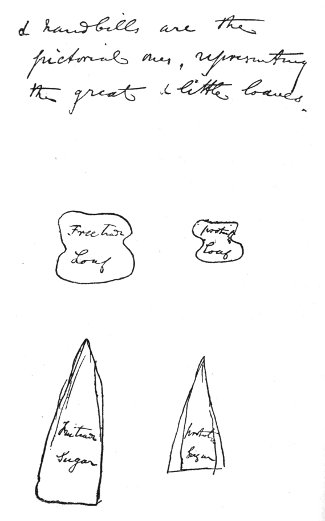 & handbills are the
pictorial ones, representing
the great & little loaves.
Free trade
Loaf
Loaf
Free trade
Sugar
Sugar